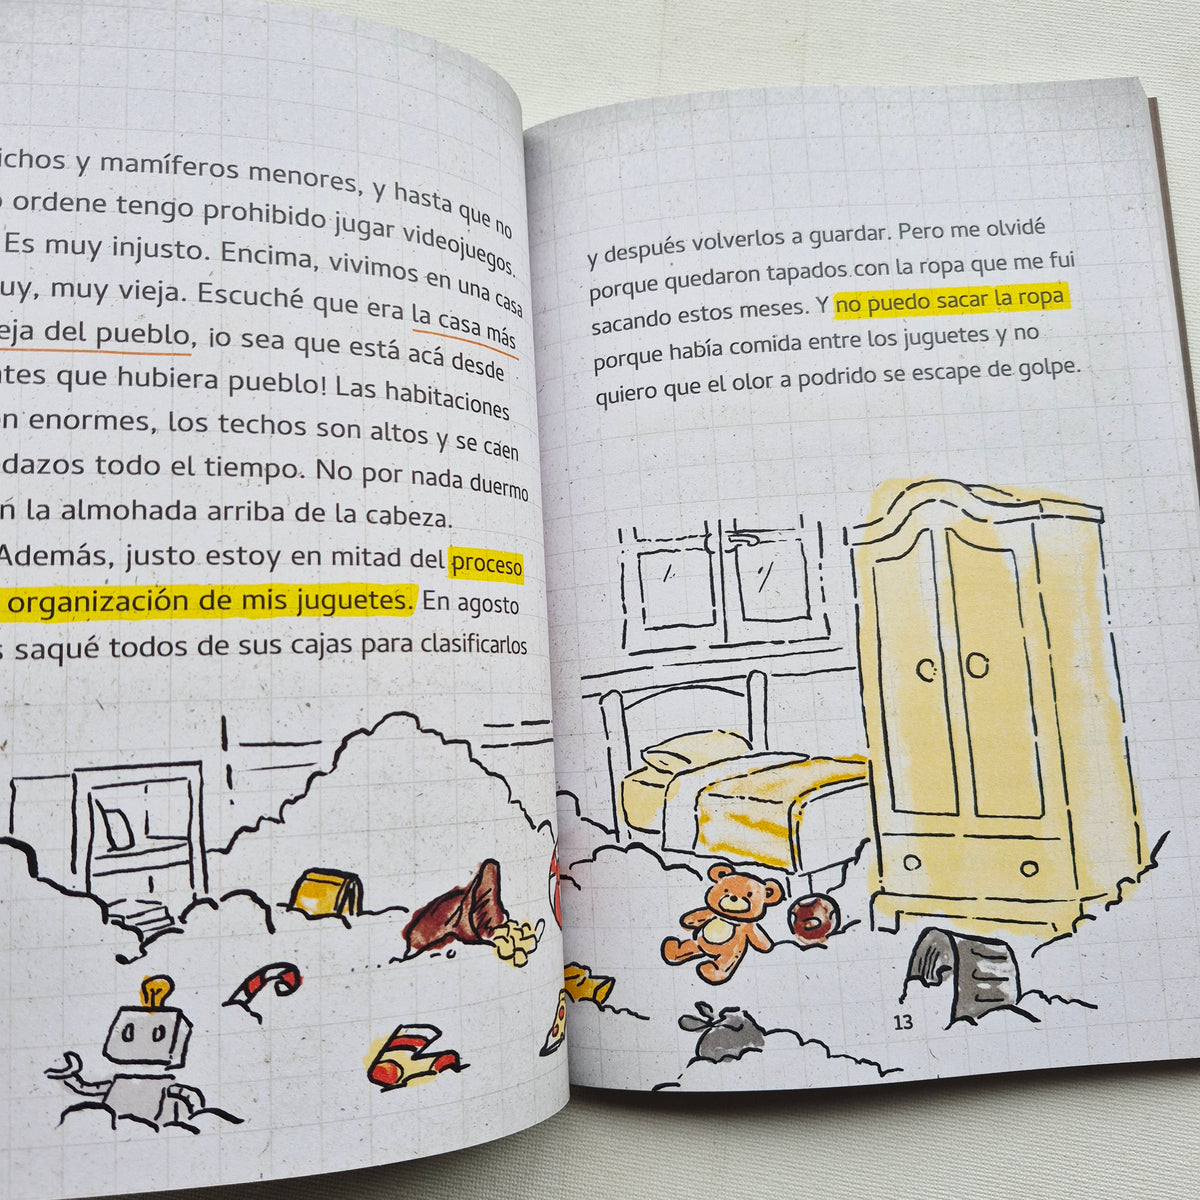 ichos y mamíferos menores, y hasta que no
o ordene tengo prohibido jugar videojuegos.
Es muy injusto. Encima, vivimos en una casa
uy, muy vieja. Escuché que era la casa más
eja del pueblo, ¡o sea que está acá desde
ntes que hubiera pueblo! Las habitaciones
on enormes, los techos son altos y se caen
dazos todo el tiempo. No por nada duermo
n la almohada arriba de la cabeza.
Además, justo estoy en mitad del proceso
organización de mis juguetes. En agosto
s saqué todos de sus cajas para clasificarlos
y después volverlos a guardar. Pero me olvidé
porque quedaron tapados con la ropa que me fui
sacando estos meses. Y no puedo sacar la ropa
porque había comida entre los juguetes y no
quiero que el olor a podrido se escape de golpe.
13